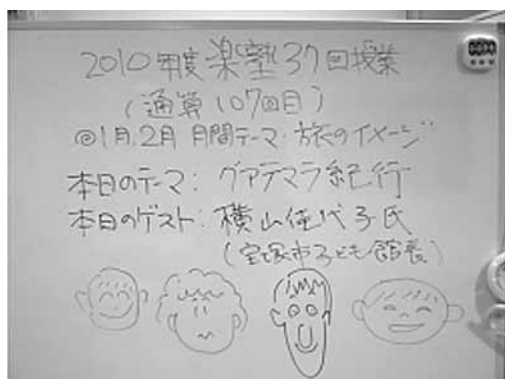 2010年度 楽塾37回授業
(通算107回目)
◎1月.2月 月間テーマ:旅のイメージ
本日のテーマ:グアテマラ紀行
本日のゲスト:横山佳代子氏
(宝塚市子ども館長)